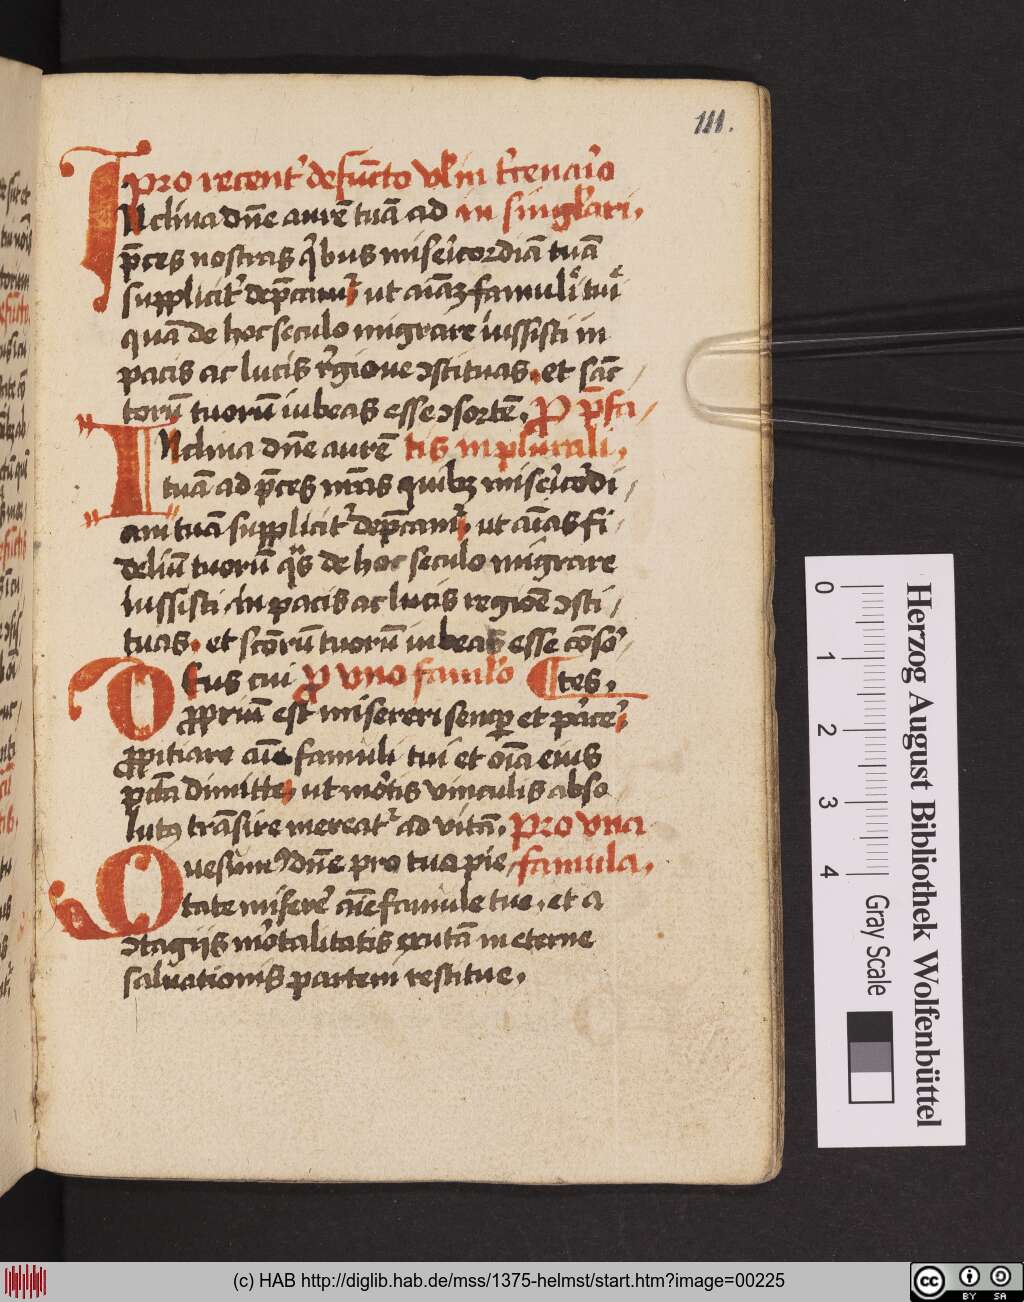 111.
pro recent' defūcto vl' in t'cenario
INclina dn̄e aurē tuā ad in singl'ari.
p̄ces nostras q'bus mis'ericordiā tuā
supplicit' dep̄cam' ut aīaʒ famulı̊ tuı̊
quā de hoc seculo migrare iussisti in
pacis ac lucis r'gione ↄstituas. et sāc /
torū tuorū iubeas esse ↄsortē. P p̄fa /
INclina dn̄e aurē tis in plurali.
tuā ad p̄ces nr̄as quibʒ mis'ericordi /
am tuā supplicit' dep̄cam' ut aīas fi /
deliū tuorū q̊s de hoc seculo migrare
iussisti. in pacis ac lucis regiōe ↄsti /
tuas. et sc̄orū tuorū iubeas esse cōsor /
Deus cui ꝓ vno famulo ¶ tes.
ꝓpriū est misereri semꝑ et p'cere.
ꝓpitiare aīe famuli tui et oīa eius
pc̄ta dimitte. ut mortis vinculis abso
lutꝰ trāsire mereat' ad vitā. pro vna
Quesum' dn̄e pro tua pie famula.
tate miserer' aīe famule tue. et a
ↄtagijs mortalitatis exutā in eterne
saluationis partem restitue.
Herzog August Bibliothek Wolfenbüttel
0 1 2 3 4
Gray Scale
(c) HAB http://diglib.hab.de/mss/1375-helmst/start.htm?image=00225
cc BY SA